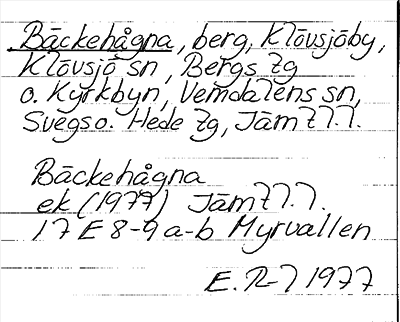 Bäckehågna, berg, Klövsjöby,
Klövsjö sn, Bergs tg
o. Kyrkbyn, Vemdalens sn,
Svegs o. Hede tg, Jämtl l.
Bäckehågna
ek (1977) Jämtl l.
17 E 8-9 a-b Myrvallen
E. R-l 1977